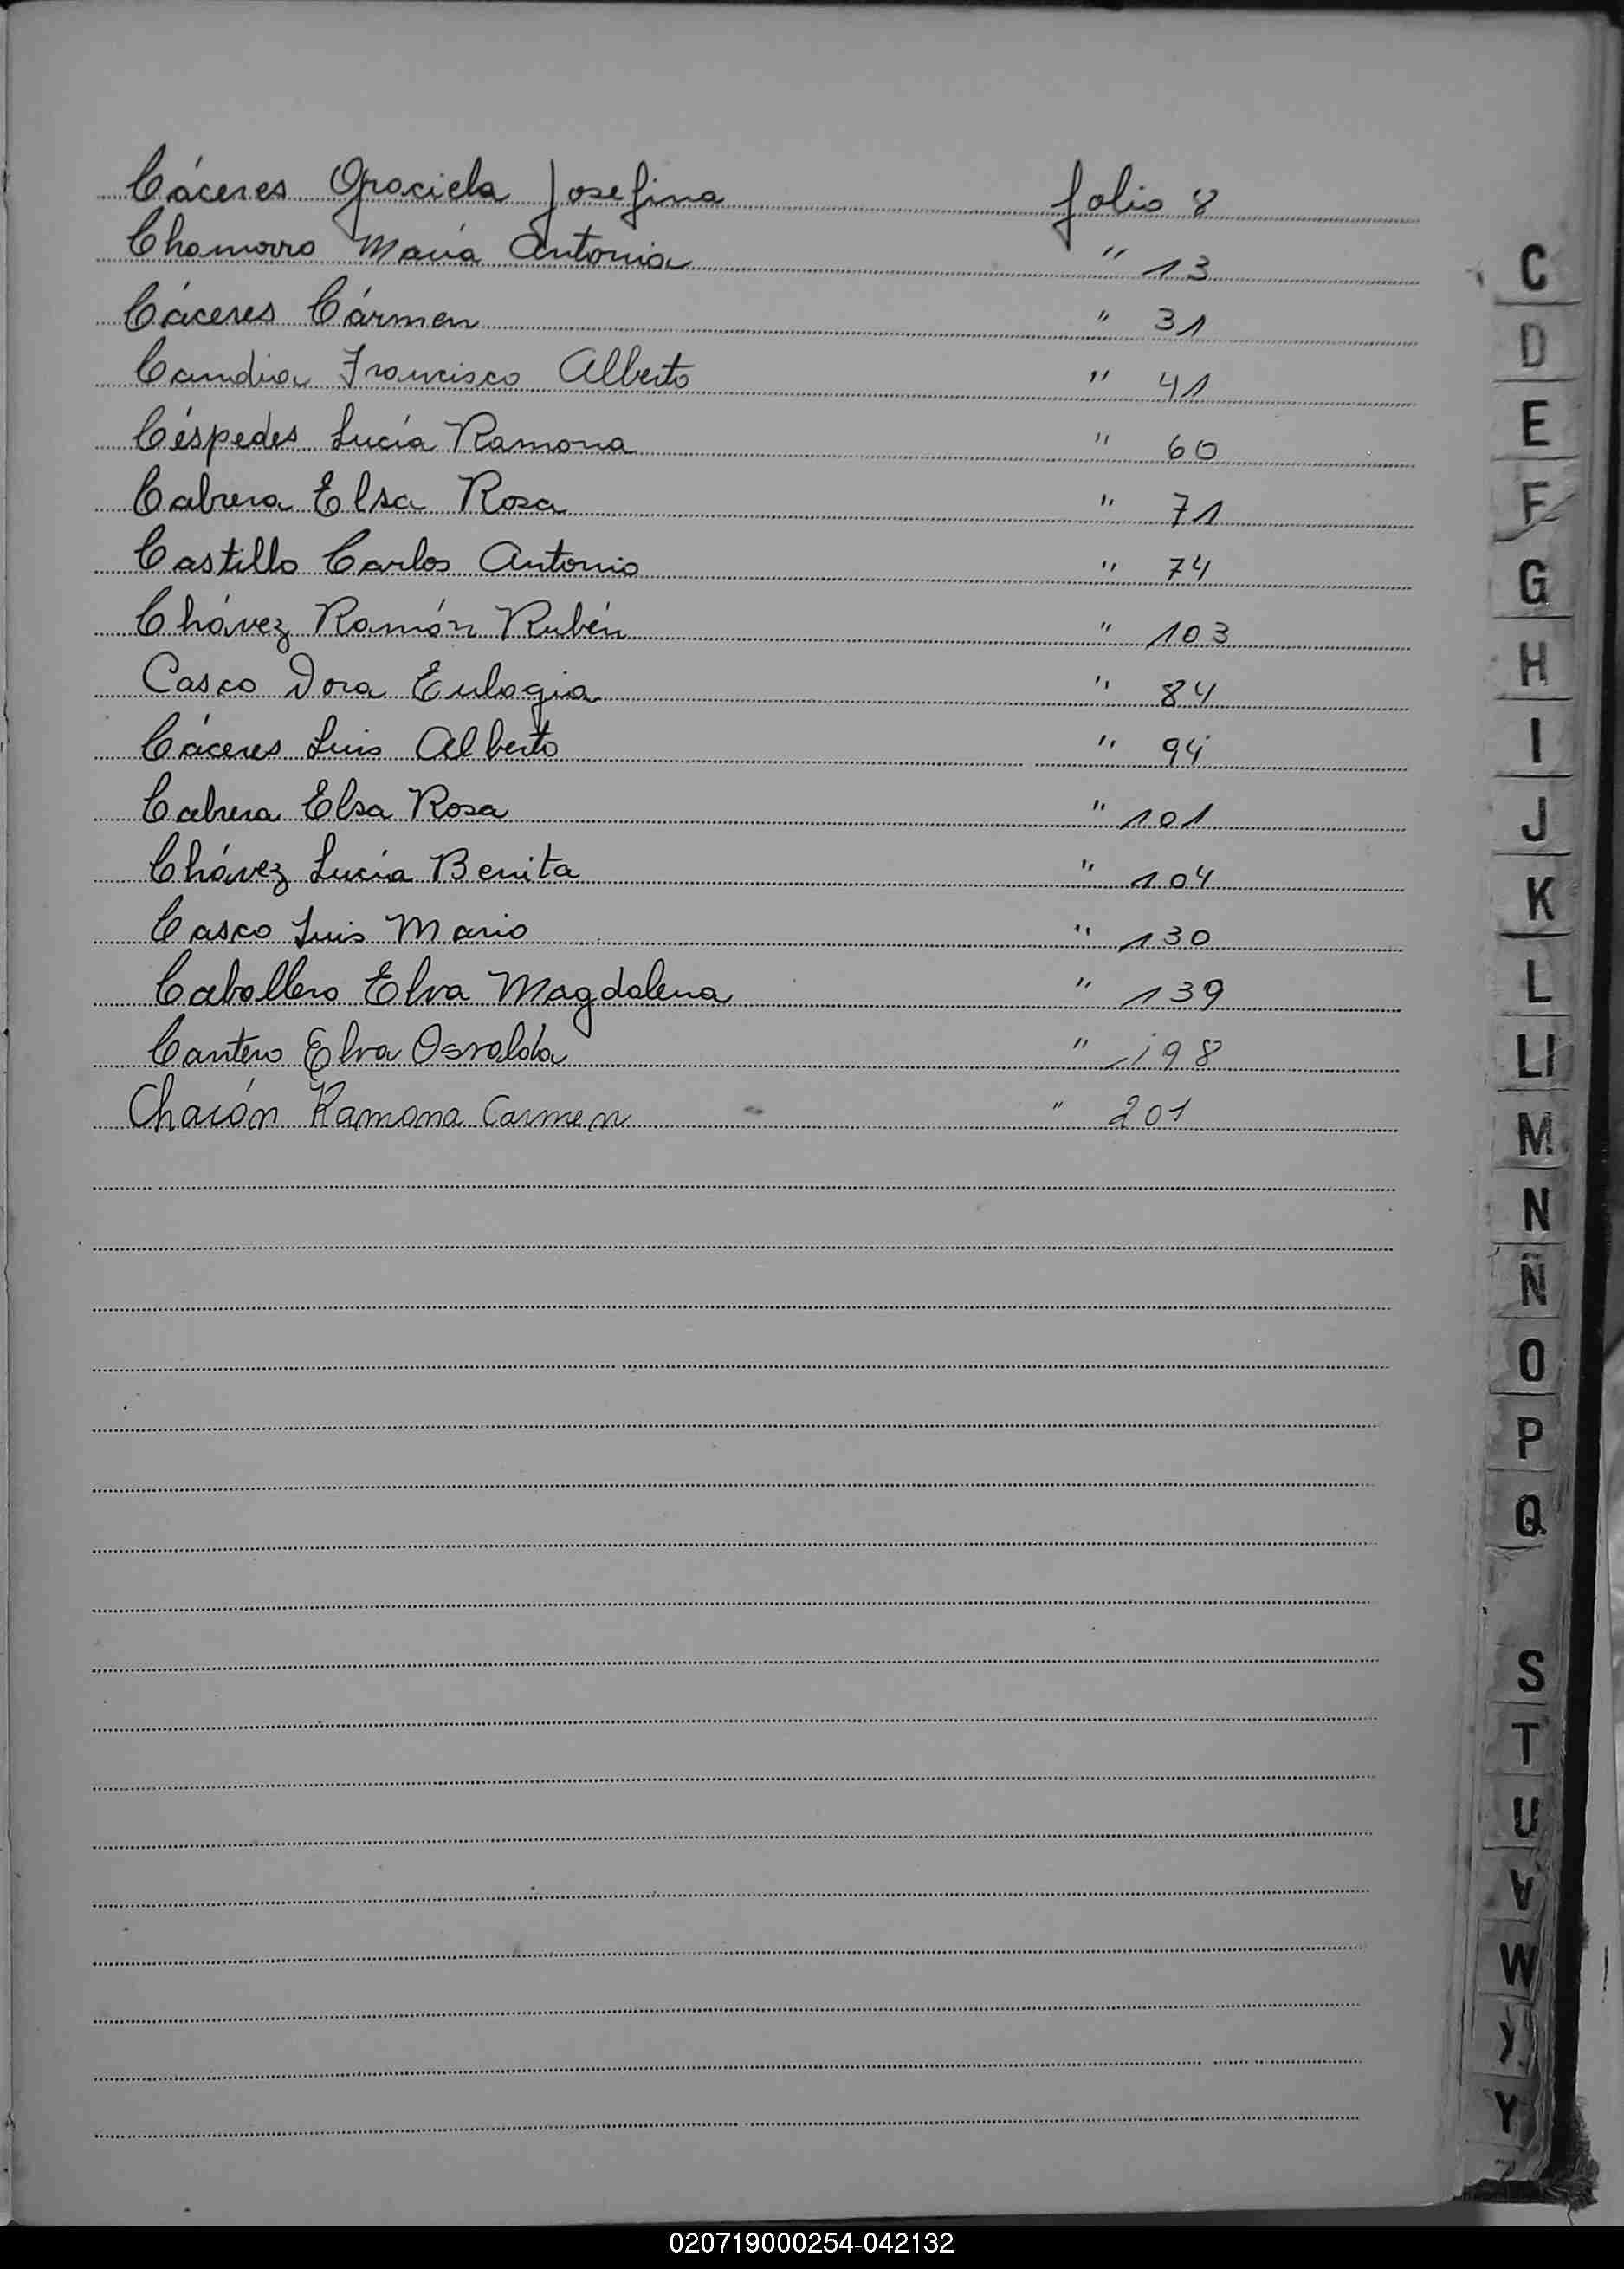 Cáceres Graciela Josefina folio 8
Chamorro María Antonia " 13
Cáceres Cármen " 31
Candia Francisco Alberto " 41
Céspedes Lucía Ramona " 60
Cabrera Elsa Rosa " 71
Castillo Carlos Antonio " 74
Chávez Ramón Rubén " 103
Casco Dora Eulogia " 84
Cáceres Luis Alberto " 94
Cabrera Elsa Rosa " 101
Chávez Lucía Benita " 104
Casco Luis Mario " 130
Caballero Elva Magdalena " 139
Cantero Elva Osvalda " 198
Ramona Carmen " 201
C
D
E
F
G
H
I
J
K
L
Ll
M
N
Ñ
O
P
Q
S
T
U
V
W
Y
020719000254-042132